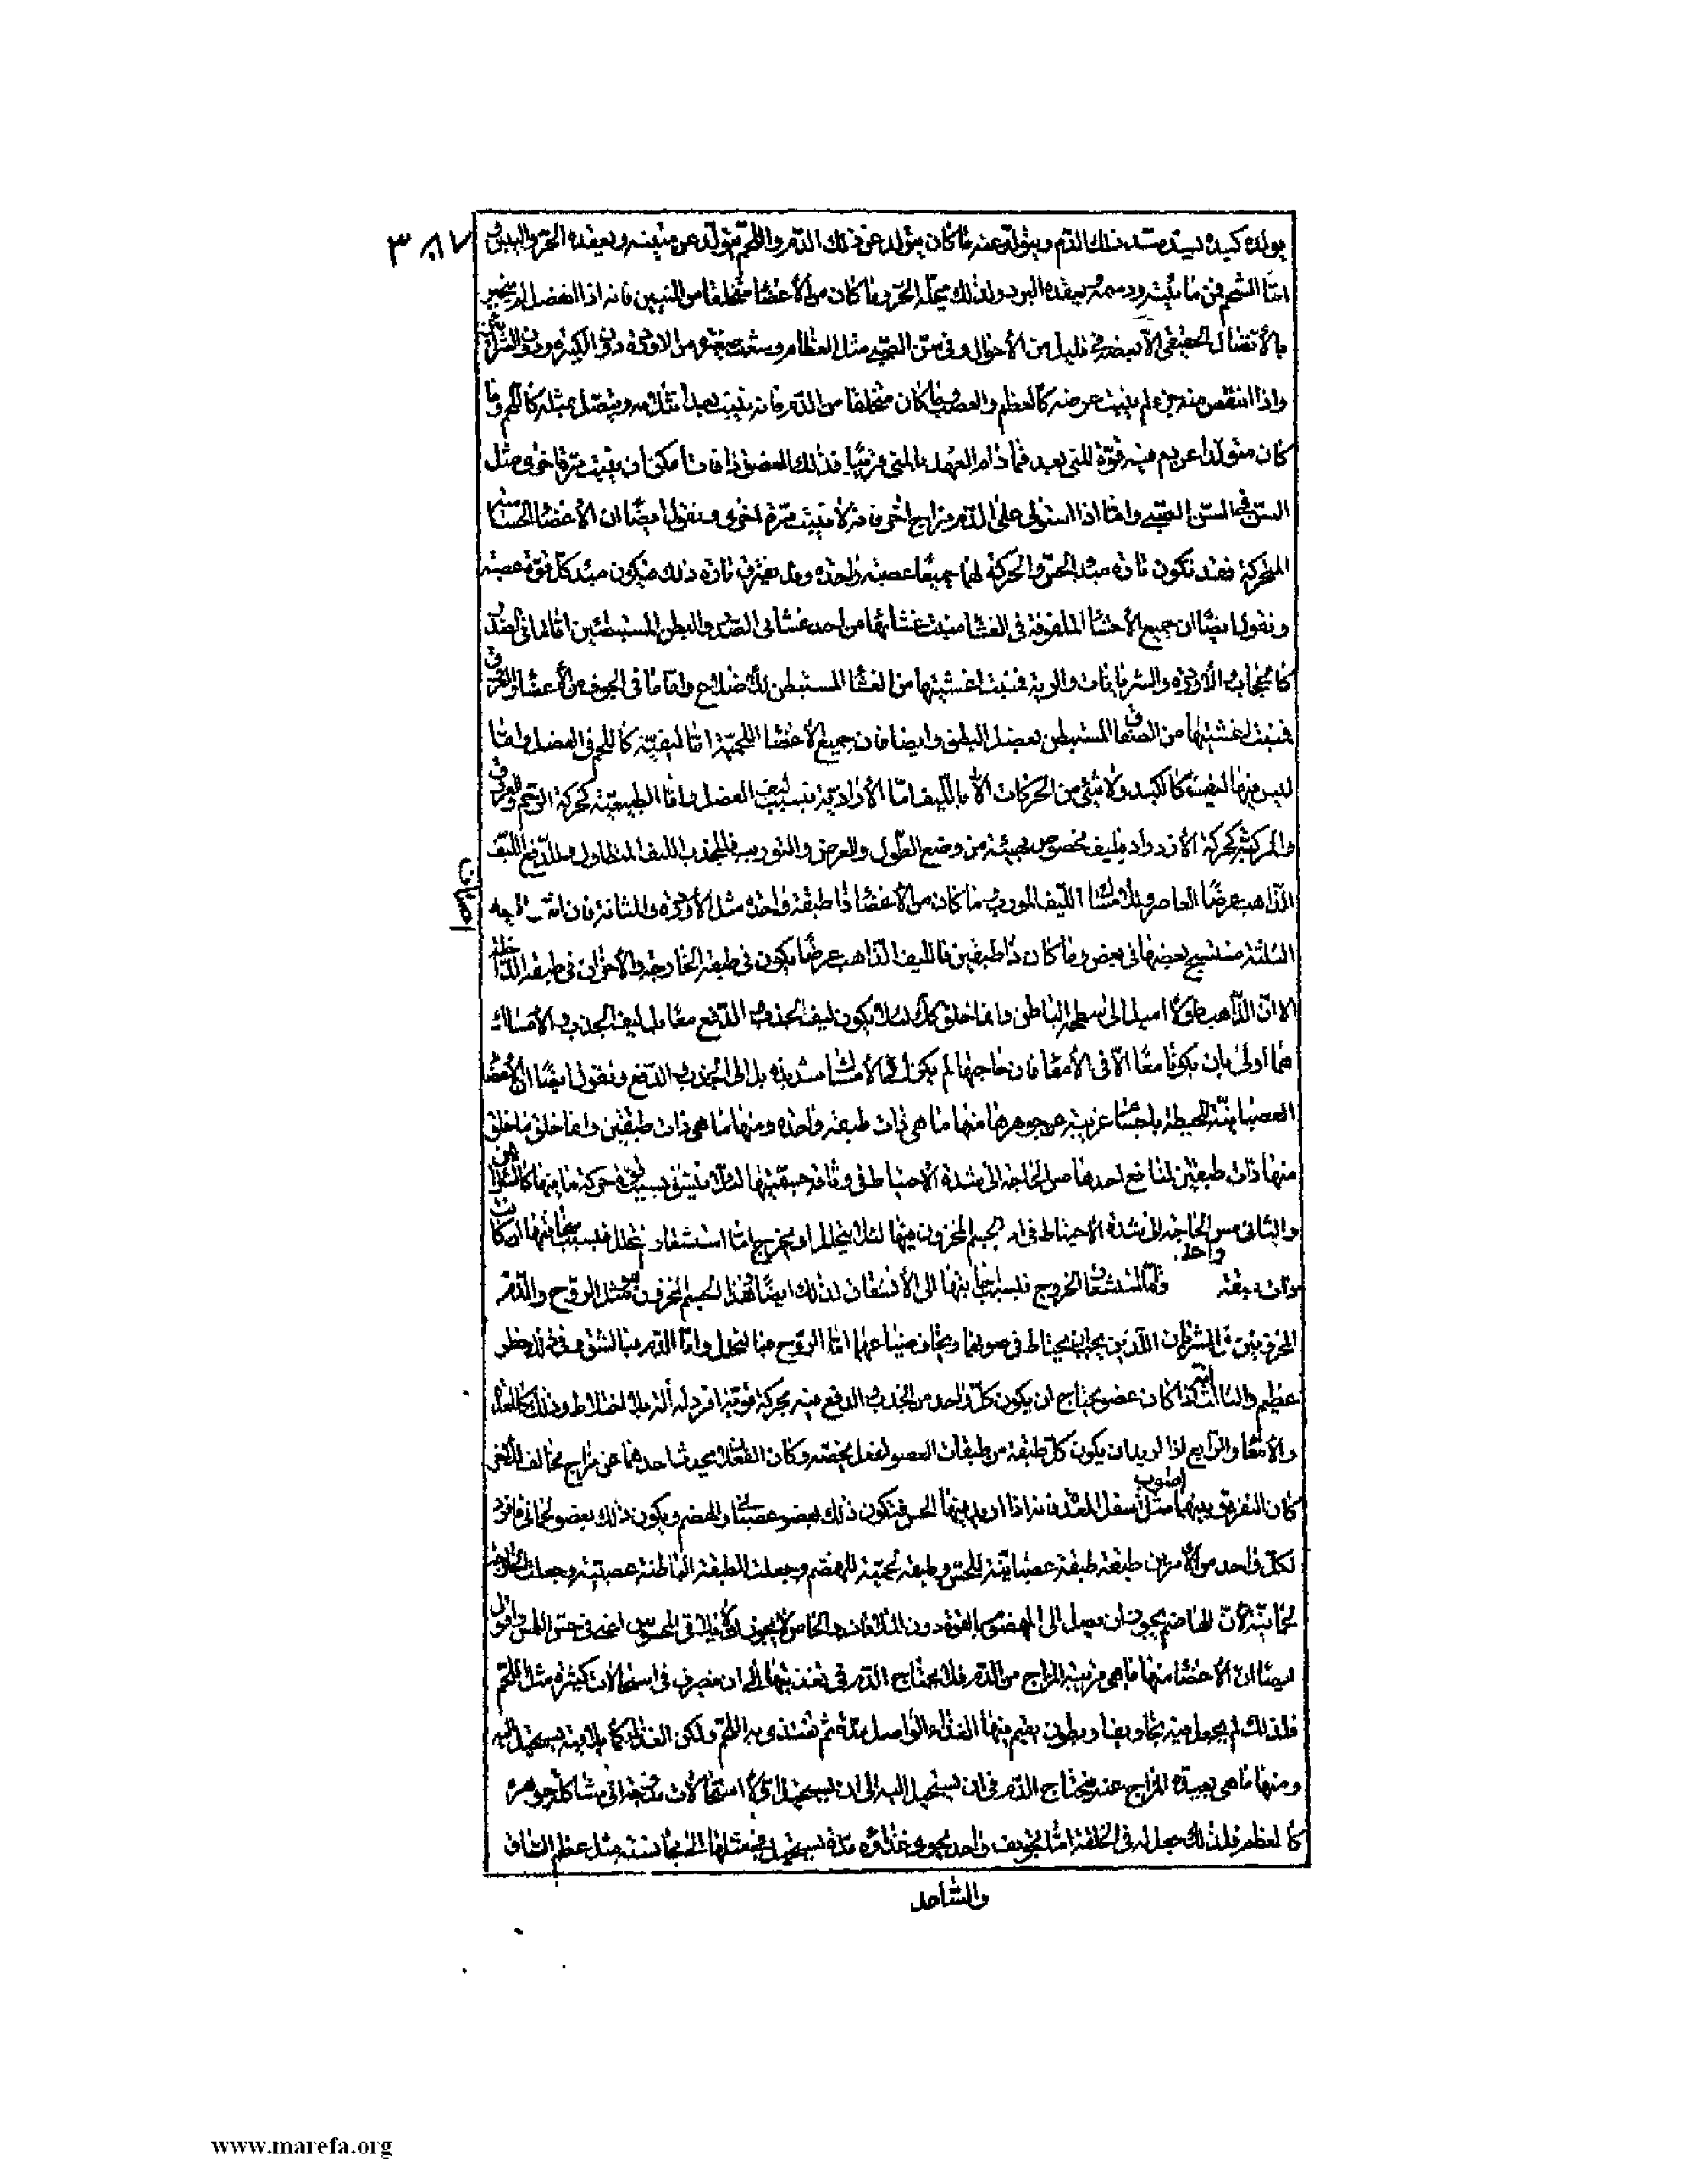 ٣٨٧
يولده كبده يسد مسد ذلك الدم ويتولد عنه ما كان يتولد عن ذلك الدم واللحم يتولد عن متينه ويعقده الحر واليبس و
اما الشحم فمن مائيته ودسمه ويعقده البرد ولذلك يحله الحر وما كان من الأعضا متخلقا من المنيين فانه اذا انفصل لم ينجبر
بالأتصال الحقيقي الا بعضه في قليل من الأحوال وفي سن الصبي مثل العظام وشعب صغيرة من الاوردة دون الكبيرة ودون الشرايين
واذا انتقص منه جزء لم ينبت عوضه كالعظم والعصب وما كان متخلقا من الدم فانه ينبت بعد انثلامه ويتصل بمثله كاللحم وما
كان متولدا عن دم فيه قوة المني بعد فما دام العهد بالمني قريبا فذلك العضو اذا فات أمكن ان ينبت مرة اخرى مثل
السن في السن الصبي واما اذا استولى على الدم مزاج اخر فانه لا ينبت مرة اخرى ونقول ايضا ان الأعضا الحساسة
المتحركة فقد تكون تارة مبدا الحس والحركة لها جميعا عصبة واحدة وقد يفترق تارة ذلك فيكون مبدا كل قوة عصبة
ونقول ايضا ان جميع الأحشا الملفوفة في الغشا منبت غشائها من احد غشائي الصدر والبطن المستبطنين اما ما في الصدر
كالحجاب والأوردة والشريانات والرية فمنبت اغشيتها من الغشا المستبطن للأضلاع واما ما في الجوف من الأعضا والعروق
فمنبت اغشيتها من الصفاق المستبطن لعضل البطن وايضا فان جميع الأعضا اللحمية اما ليفية كاللحم في العضل واما
ليس فيها ليف كالكبد ولا شئ من الحركات الا بالليف اما الأرادية فبسبب ليف العضل واما الطبيعية كحركة الرحم والعروق
والمركبة كحركة الأزدراد فبليف مخصوص بهيئة من وضع الطول والعرض والتوريب فللجذب الليف المتطاول وللدفع الليف
الذاهب عرضا العاصر وللامساك الليف المورب وما كان من الأعضا ذا طبقة واحدة مثل الأوردة والمثانة فان اصناف ليفه
الثلثة منتسج بعضها في بعض وما كان ذا طبقتين فالليف الذاهب عرضا يكون في طبقته الخارجة والأخران في طبقته الداخلة
الا ان الذاهب طولا اميل الى سطحه الباطن وانما خلق كذلك لئلا يكون ليف الجذب والدفع معا بل ليف الجذب والأمساك
هما أولى بان يكونا معا الا في الأمعا فان حاجتها لم يكن الى الأمساك شديدة بل الى الجذب والدفع ونقول ايضا ان الأعضا
العصبانية المحيطة باجسام غريبة عن جوهرها منها ما هي ذات طبقة واحدة ومنها ما هي ذات طبقتين وانما خلق ما خلق
منها ذات طبقتين لمنافع احدها مس الحاجة الى شدة الاحتياط في وثاقة جسميتها لئلا تنشق بسبب قوة حركة ما فيها كالشرايين
والثاني مس الحاجة الى شدة الأحتياط في امر الجسم المخزون فيها لئلا يتحلل او يخرج اما استشعار التحلل فبسبب سخافتها ان كانت
ذات طبقة واحدة واما استشعار الخروج فبسبب اجابتها الى الأنشقاق لذلك ايضا وهذا الجسم المخزون مثل الروح والدم
المخزونين في الشرايين اللذين يجب ان يحتاط في صونهما ويخاف ضياعهما اما الروح فبالتحلل واما الدم فبالشق وفي ذلك خطر
عظيم والثالث انه اذا كان عضو يحتاج ان يكون كل واحد من الجذب والدفع فيه بحركة قوية افرد له آلة بلا اختلاط وذلك كالمعدة
والأمعا والرابع اذا اريد ان يكون كل طبقة من طبقات العضو لفعل يخصه وكان الفعلان يحدث احدهما عن مزاج مخالف للأخر
كان التفريق بينهما اصوب مثل المعدة فانه اذا اريد فيها الحس فيكون ذلك بعضو عصباني والهضم ويكون ذلك بعضو لحماني فافرد
لكل واحد من الأمرين طبقة طبقة عصبانية للحس وطبقة لحمية للهضم وجعلت الطبقة الباطنة عصبية وجعلت الخارجة
لحمانية لأن الهاضم يجوز ان يصل الى المهضوم بالقوة دون الملاقاة والحاس لا يجوز ان لا يلاقي المحسوس اعني في حس اللمس اقول
ايضا ان الأعضا منها ما هي قريبة المزاج من الدم فلا يحتاج الدم في تغذيتها الى ان يتصرف في استحالات كثيرة مثل اللحم
فلذلك لم يجعل فيه تجاويف وبطون يقيم فيها الغذاء الواصل مدة ثم تغتذي به اللحم ولكن الغذا كما يلاقيه يستحيل اليه
ومنها ما هي بعيدة المزاج عنه فيحتاج الدم في ان يستحيل اليه الى ان يستحيل اولا استحالات متدرجة الى مشاكلة جوهره
كالعظم فلذلك جعل له في الخلقة اما تجويف واحد يحوي غذاؤه مدة يستحيل في مثلها الى مجانسته مثل عظم الساق
والساعد
www.marefa.org